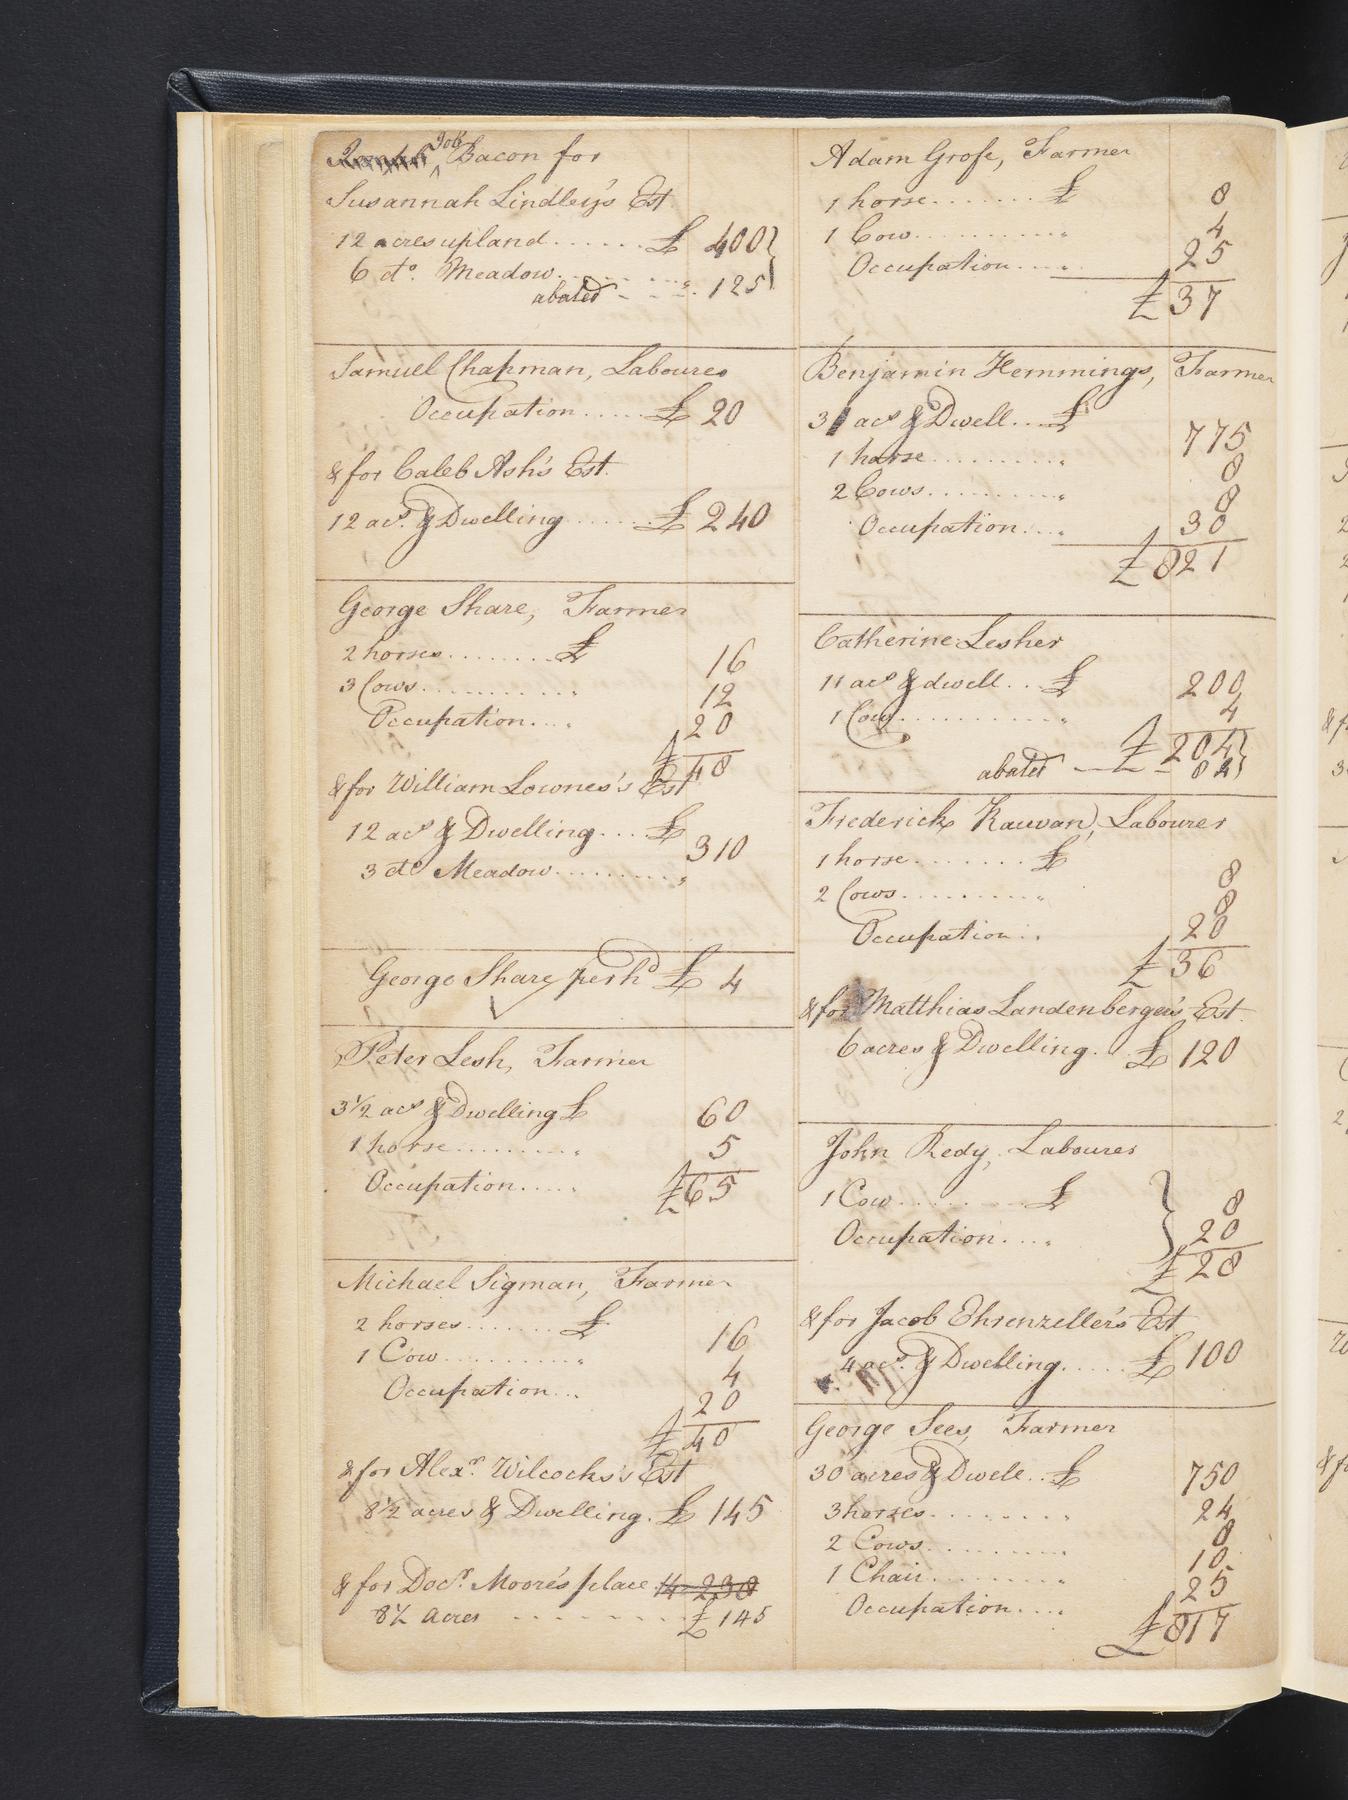 Job
Bacon for
Susannah Lindley's Est
12 acres upland ...... £ 400
6 do. Meadow ......
abated - - - . 125
Samuel Chapman, Labourer
Occupation ..... £ 20
& for Caleb Ash's Est.
12 acs. & Dwelling ...... £ 240
George Share, Farmer
2 horses ........ £ 16
3 Cows ........... " 12
Occupation ... " 20
£ 48
& for William Lownes's Est
12 acs & Dwelling .... £ 310
3 do Meadow ......... "
George Share perhd £ 4
Peter Lesh, Farmer
3 1/2 acs & Dwelling £ 60
1 horse ......... " 5
Occupation ..... "
£ 65
Michael Sigman, Farmer
2 horses ....... £ 16
1 Cow .......... " 4
Occupation ... 20
£ 40
& for Alexr. Wilcocks's Est
8 1/2 acres & Dwelling . £ 145
& for Docr. Moore's place 14 - 230
8 1/2 Acres - - - - - - - £ 145
Adam Grose, Farmer
1 horse ....... £ 8
1 Cow ........... " 4
Occupation .... " 25
£ 37
Benjamin Hemmings, Farmer
31 acs & Dwell .... £ 775
1 horse .......... " 8
2 Cows .......... " 8
Occupation .... " 30
£ 821
Catherine Lesher
11 acs & dwell ... £ 200
1 Cow ............ " 4
£ 204
abated — — - 84
Frederick Kauvan, Labourer
1 horse ........ £ 8
2 Cows .......... " 8
Occupation .. " 20
£ 36
& for Matthias Landenberger's Est.
6 acres & Dwelling .. £ 120
John Redy, Labourer
1 Cow .......... £ 8
Occupation .... " 20
£ 28
& for Jacob Ehrenzeller's Est
4 acs. & Dwelling ..... £ 100
George Sees, Farmer
30 acres & Dwell .. £ 750
3 horses ......... " 24
2 Cows .......... " 8
1 Chair .......... " 10
Occupation .... " 25
£ 817